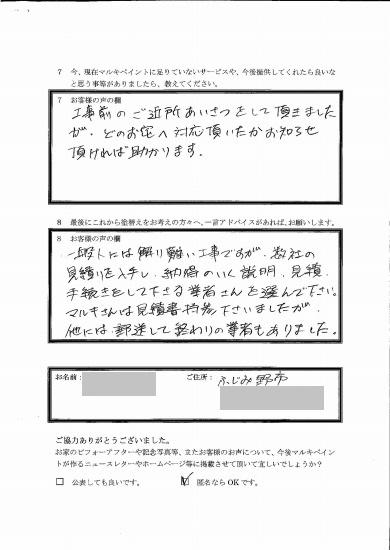 7 今、現在マルキペイントに足りていないサービスや、今後提供してくれたら良いな
と思う事等がありましたら、教えてください。
7 お客様の声の欄
工事前のご近所あいさつをして頂きました
が、どのお宅へ対応頂いたかお知らせ
頂ければ助かります。
8 最後にこれから塗替えをお考えの方々へ、一言アドバイスがあれば、お願いします。
8 お客様の声の欄
一般人には解り難い工事ですが、数社の
見積りを入手し、納得のいく説明、見積、
手続きをして下さる業者さんを選んで下さい。
マルキさんは見積書持参下さいましたが、
他には郵送して終わりの業者もありました。
お名前: ご住所: ふじみ野市
ご協力ありがとうございました。
お家のビフォーアフターや記念写真等、またお客様のお声について、今後マルキペイン
トが作るニュースレターやホームページ等に掲載させて頂いて宜しいでしょうか?
□ 公表しても良いです。 ☑ 匿名ならOKです。